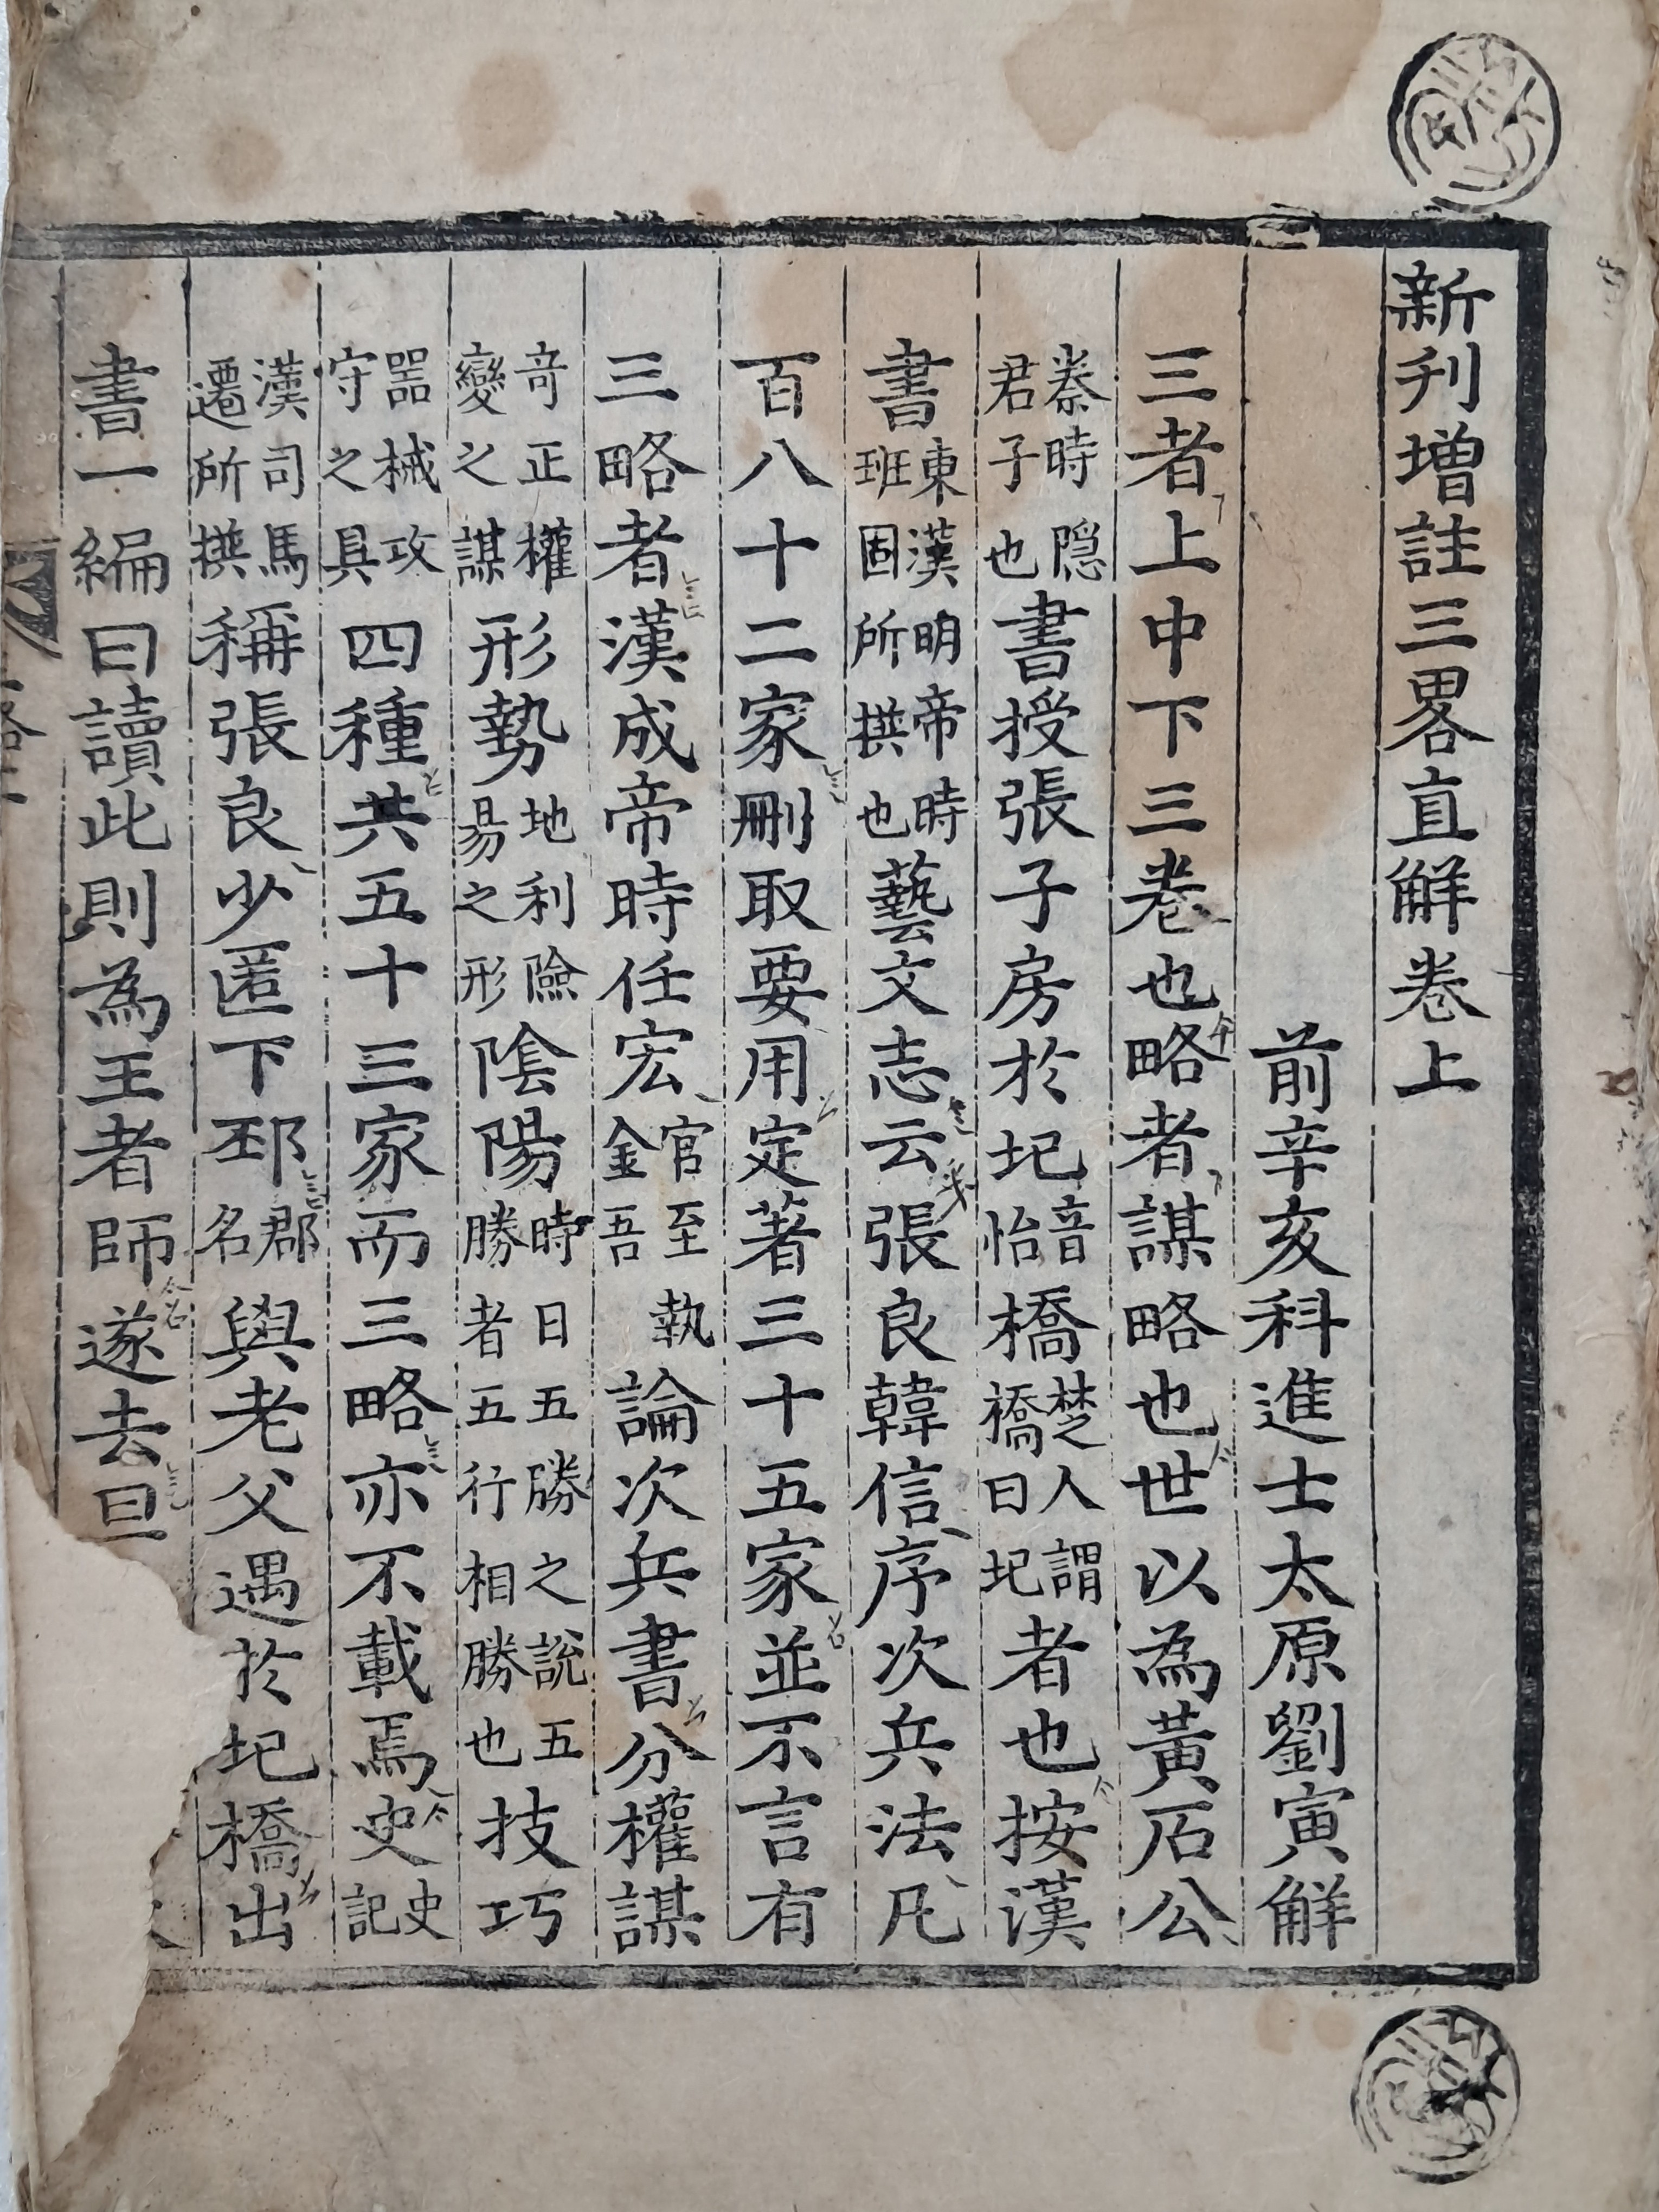 新刋增註三畧直觧卷上
前辛亥科進士太原劉寅觧
三者上中下三卷也略者謀略也世以為黃石公
秦時隠君子也書授張子房於圯音怡橋楚人謂橋曰圯者也按漢
書東漢明帝時班固所撰也藝文志云張良韓信序次兵法凡
百八十二家刪取要用定著三十五家並不言有
三略者漢成帝時任宏官至執金吾論次兵書分權謀
竒正權變之謀形勢地利險易之形陰陽時日五勝之說五勝者五行相勝也技巧
器械攻守之具四種共五十三家而三略亦不載焉史史記
漢司馬遷所撰稱張良少匿下邳郡名與老父遇於圯橋出
書一編曰讀此則為王者師遂去旦